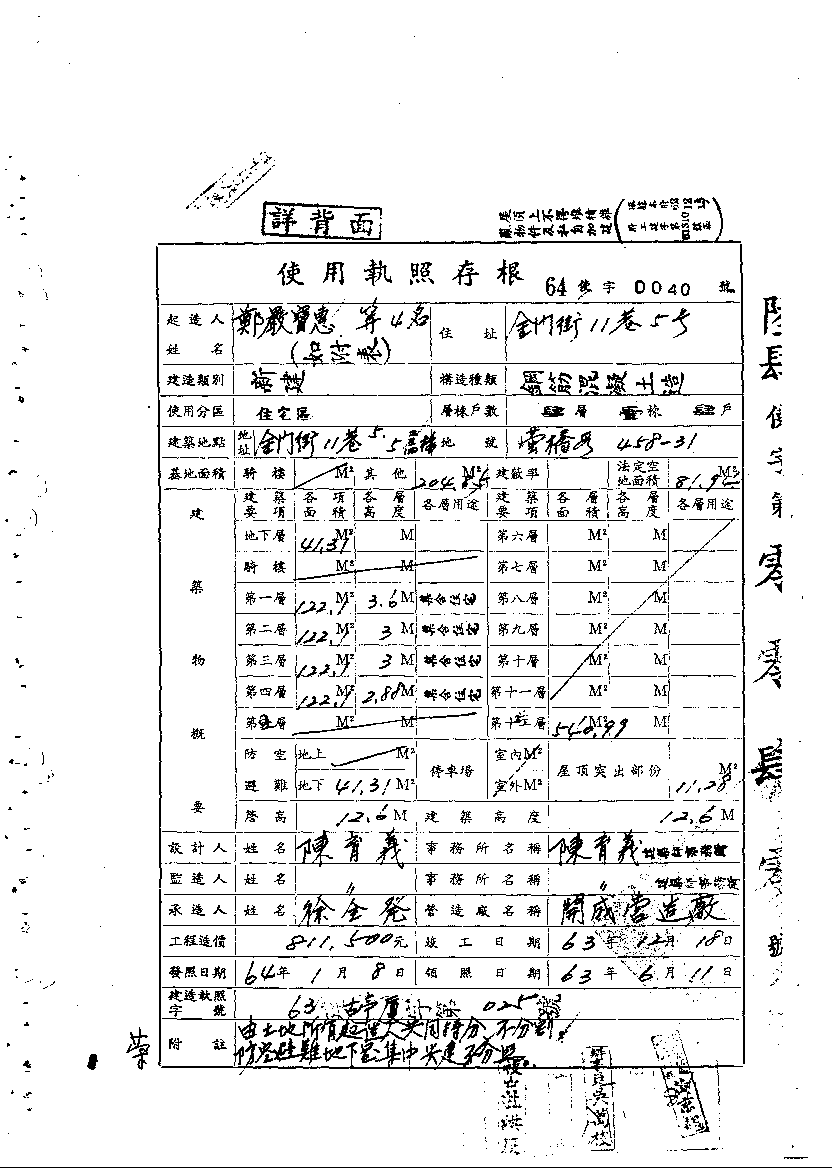 詳背面
屋頂上不得堆積雜
使用執照存根 64 使字 0040 號
起造人姓名 鄭嚴寶惠 等4名 (如附表) 住址 金門街11巷5号
建造類別 新建 構造種類 鋼筋混凝土造
使用分區 住宅區 層棟戶數 肆層 棟 戶
建築地點 地址 金門街11巷5. 地號 螢橋段 458-31
基地面積 騎樓 M² 其他 204.85 M² 建蔽率 法定空地面積 81.94 M²
建築物概要 建築要項 各項面積 各層高度 各層用途 建築要項 各層面積 各層高度 各層用途
地下層 41.31 M² M 第六層 M² M
騎樓 M² M 第七層 M² M
第一層 122.9 M² 3.6 M 集合住宅 第八層 M² M
第二層 122.9 M² 3 M 集合住宅 第九層 M² M
第三層 122.9 M² 3 M 集合住宅 第十層 M² M
第四層 122.9 M² 2.88 M 集合住宅 第十一層 M² M
第五層 M² M 第十 層 540.99 M² M
防空避難 地上 M² 停車場 室內 M² 屋頂突出部份 11.28 M²
地下 41.31 M² 室外 M²
簷高 12.6 M 建築高度 12.6 M
設計人 姓名 陳育義 事務所名稱 陳育義
監造人 姓名 〃 事務所名稱 〃
承造人 姓名 徐金發 營造廠名稱 開成營造廠
工程造價 811,500元 竣工日期 63年12月18日
發照日期 64年1月8日 領照日期 63年6月11日
建造執照字號 63 025
附註 由土地所有起造人共同持分不分割.
防空避難地下室集中共建不分照.
陸肆使字第零零肆零號